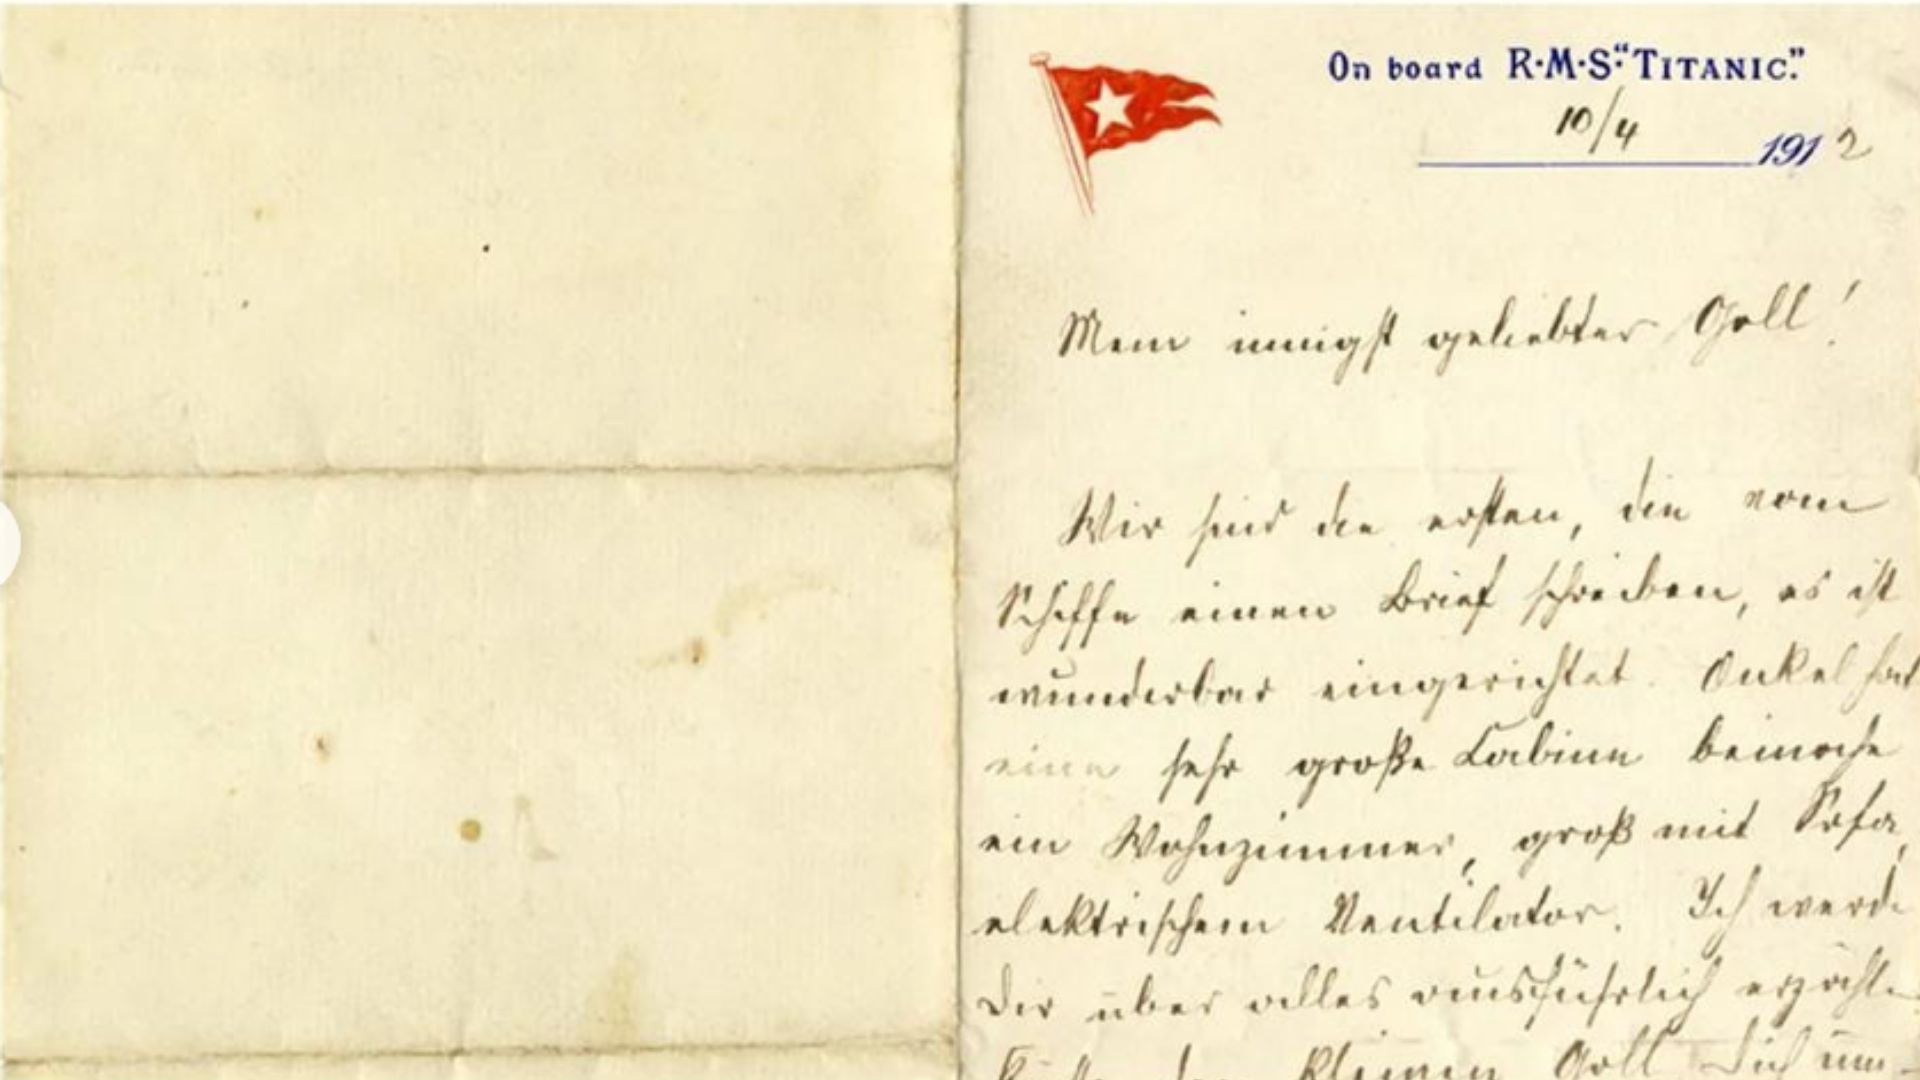 On board R·M·S· "TITANIC."
10/4 1912
Mein innigst geliebter Goll!
Wir sind die ersten, die vom
Schiffe einen Brief schreiben, es ist
wunderbar eingerichtet. Onkel hat
eine sehr große Cabine beinahe
ein Wohnzimmer, groß mit Sofa,
elektrischem Ventilator. Ich werde
Dir über alles ausführlich erzähle
kleinen Goll Dich